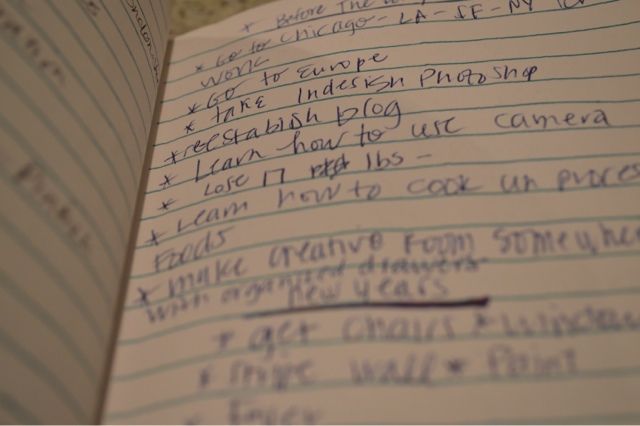 * Before The
* Go to Chicago - LA - SF - NY
work
* Go to Europe
* take Indesign Photoshop
* reestablish blog
* Learn how to use camera
* Lose 17 lbs -
* Learn how to cook un proces
Foods
* make creative room somewhe
with organized drawers
new years
* get chairs * window
* stripe wall * Paint